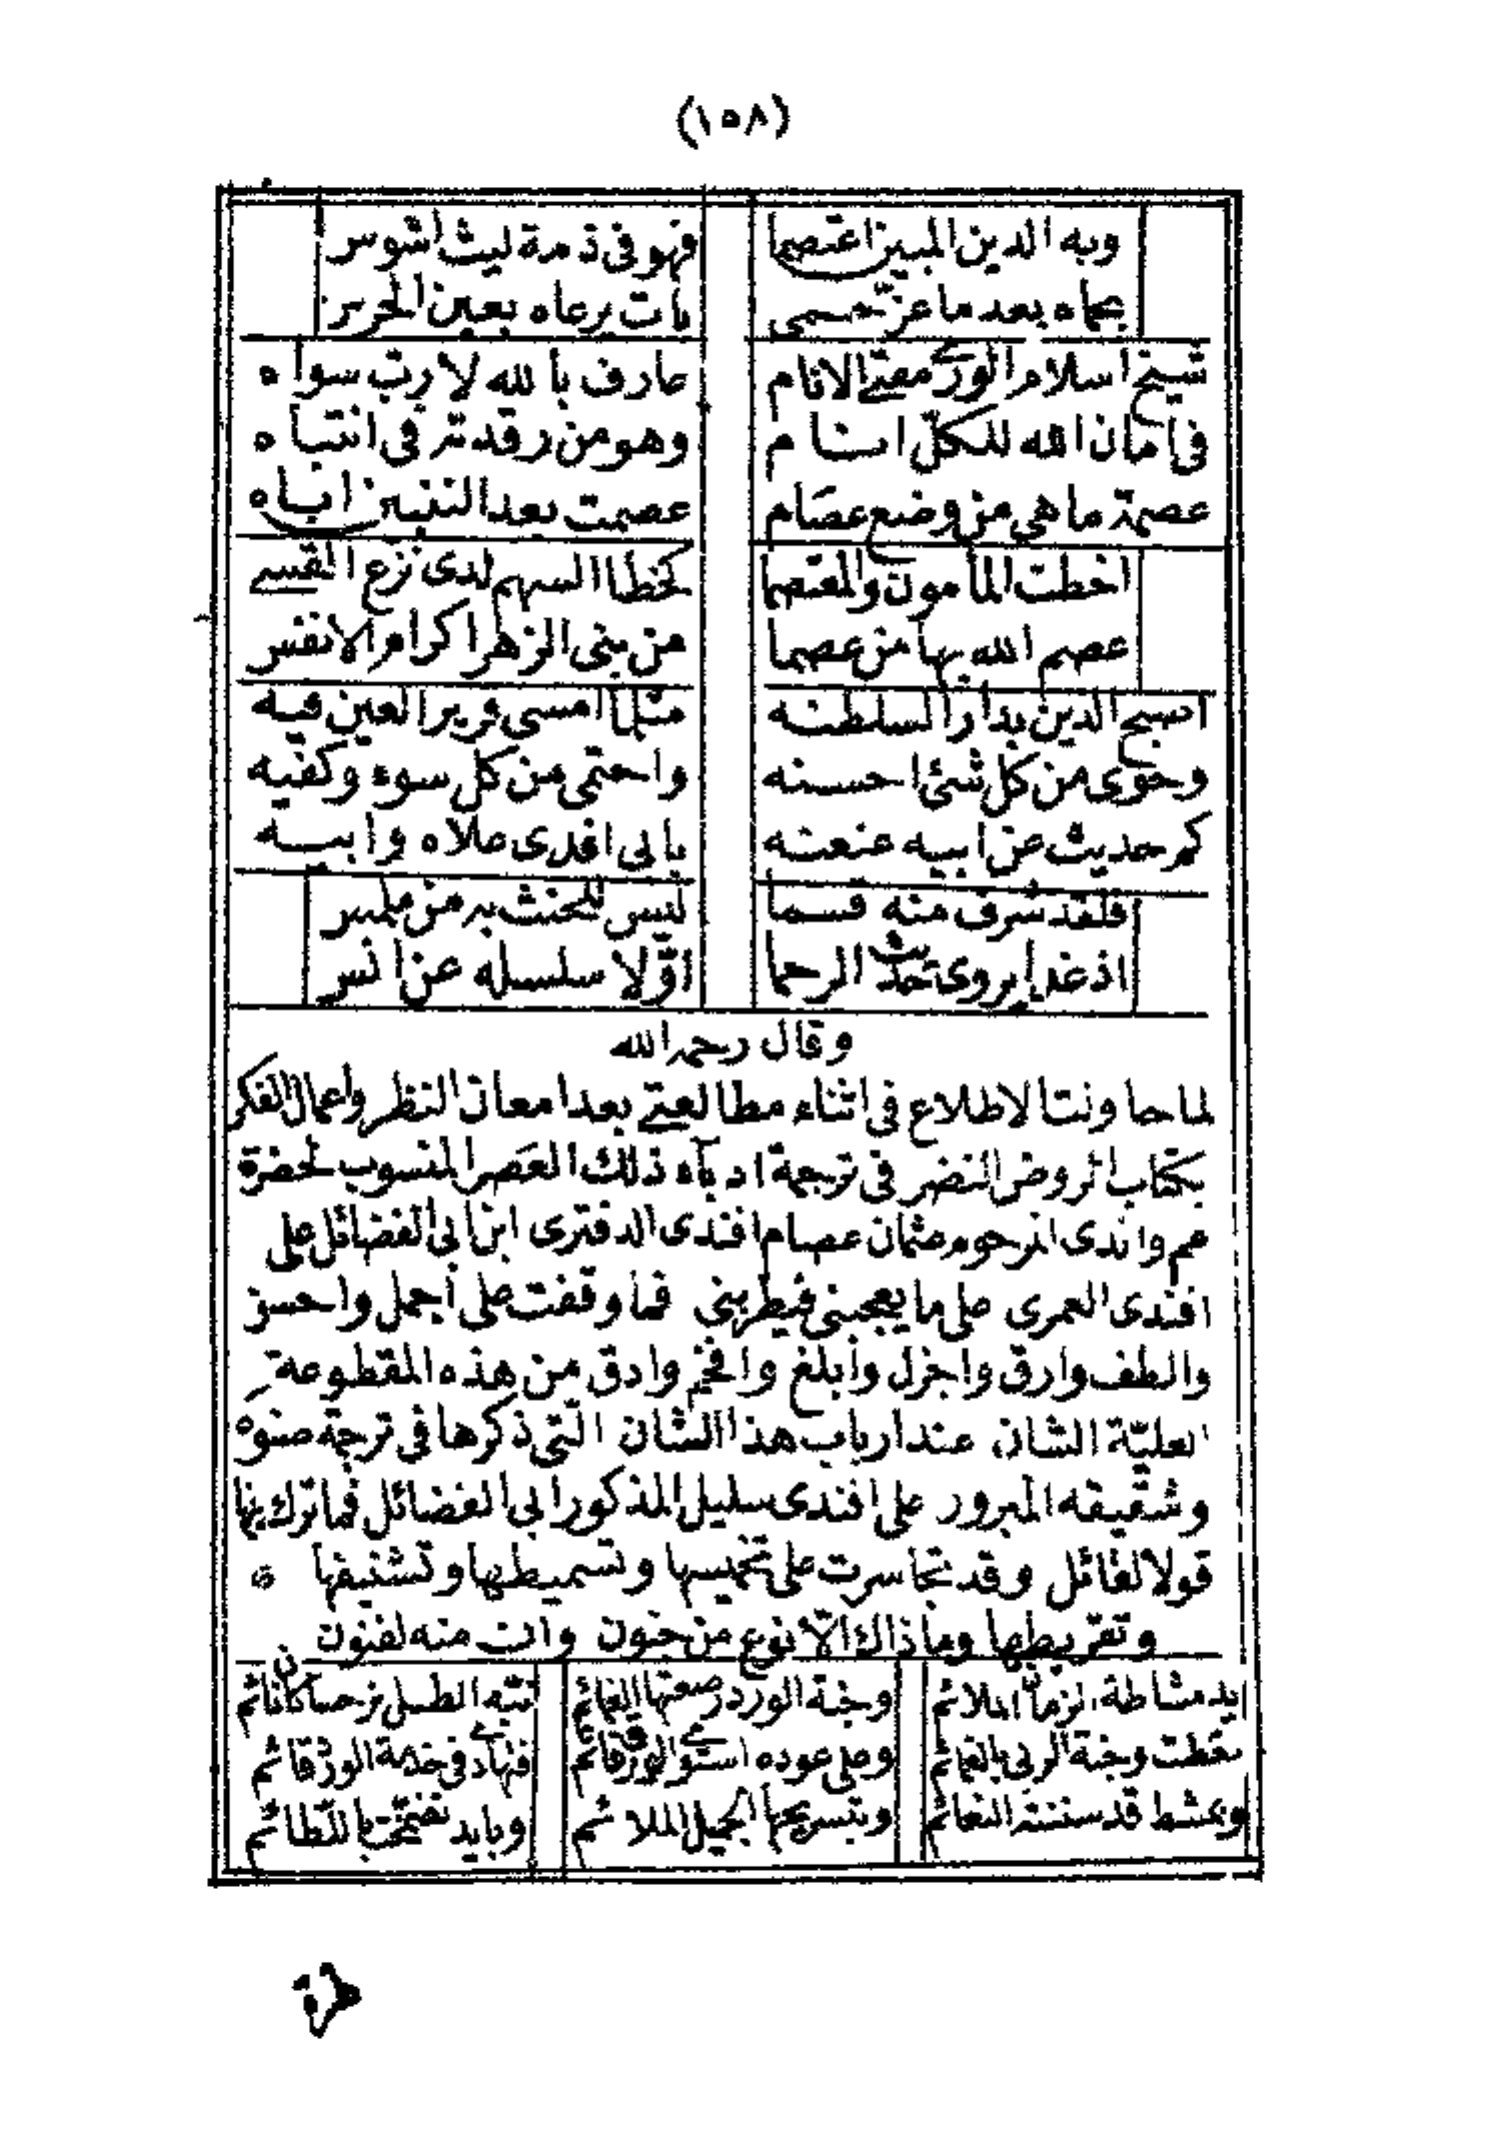 (١٥٨)
وبه الدين المبين اعتصما فهو فى ذمة ليث اشوس
بحماه بعد ما عزّ حمى بات يرعاه بعين الحرس
شيخ اسلام الورى مفتى الانام عارف بالله لا رب سواه
فى امان الله للكلّ انام وهو من رقدته فى انتباه
عصمة ما هى من وضع عصام عصمت بعد النبيين انباه
اخطت المأمون والمعتصما كخطا السهم لدى نزع القسى
عصم الله بها من عصما من بنى الزهرا كرام الانفس
اصبح الدين بدار السلطنه مثلما امسى قرير العين فيه
وحوى من كل شئ احسنه واحتمى من كل سوء وكفيه
كم حديث عن ابيه عنعنه بابى افدى علاه وابيه
فلقد شرف منه قسما ليس للحنث به من ملمس
اذ غدا يروى حديث الرحما اوّلا سلسله عن انس
وقال رحمه الله
لما حا ونت الاطلاع فى اثناء مطالعتى بعد امعان النظر واعمال الفكر
بكتاب الروض النضر فى ترجمة ادبآء ذلك العصر المنسوب لحضرة
عم والدى المرحوم عثمان عصام افندى الدفترى ابن ابى الفضائل على
افندى العمرى على ما يعجبنى فيطربنى فما وقفت على أجمل واحسن
والطف وارق واجزل وأبلغ وافخم وادق من هذه المقطوعة
العليّة الشان عند ارباب هذا الشان الّتى ذكرها فى ترجمة صنوه
وشقيقه المبرور على افندى سليل المذكور ابى الفضائل فما ترك بها
قولا لقائل وقد تجاسرت على تخميسها وتسميطها وتشنيفها ه
وتقريطها وما ذاك الّا نوع من جنون وانت منه لفنون
يد مشاطة الزما الملائم وجنة الورد صبغتها الغمائم نبّه الطل نرجسا كان نائم
نقطت وجنة الربى بالغمائم وعلى عوده استوى الورق قائم فتهادى فى خدمة الورد قائم
وبمشط قد سننته النعائم وبتسريحها الجميل الملائم وبايد تضمّخت باللّطائم